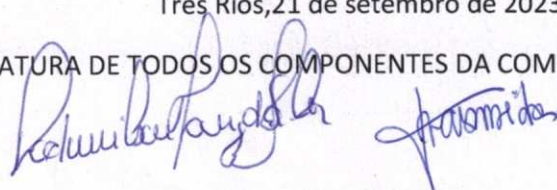 Três Rios,21 de setembro de 2023
ATURA DE TODOS OS COMPONENTES DA COM